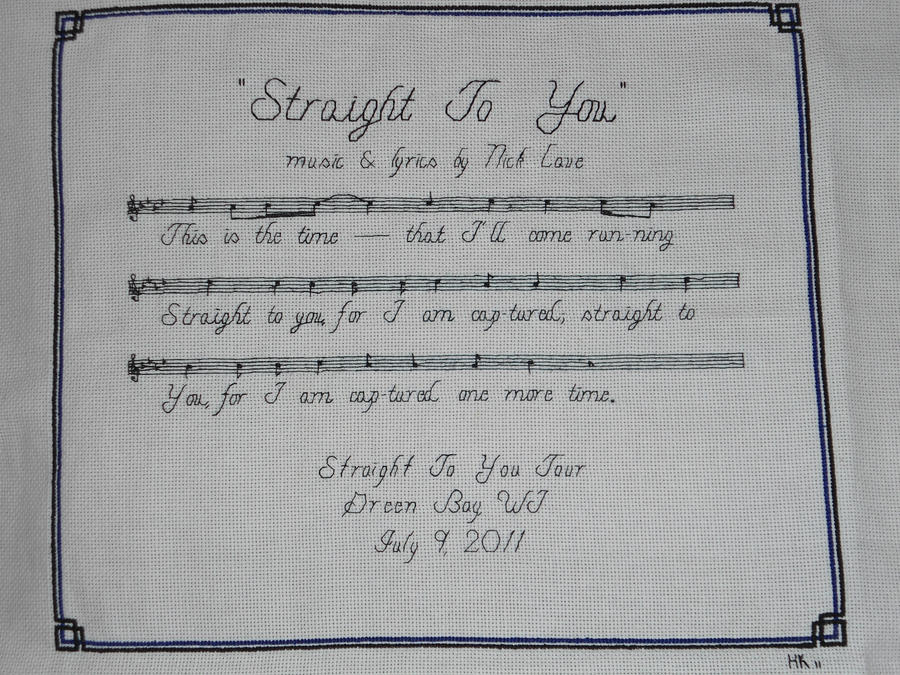 "Straight To You"
music & lyrics by Nick Cave
This is the time — that I'll come run-ning
Straight to you, for I am cap-tured; straight to
You, for I am cap-tured one more time.
Straight To You Tour
Green Bay WI
July 9, 2011
HK 11